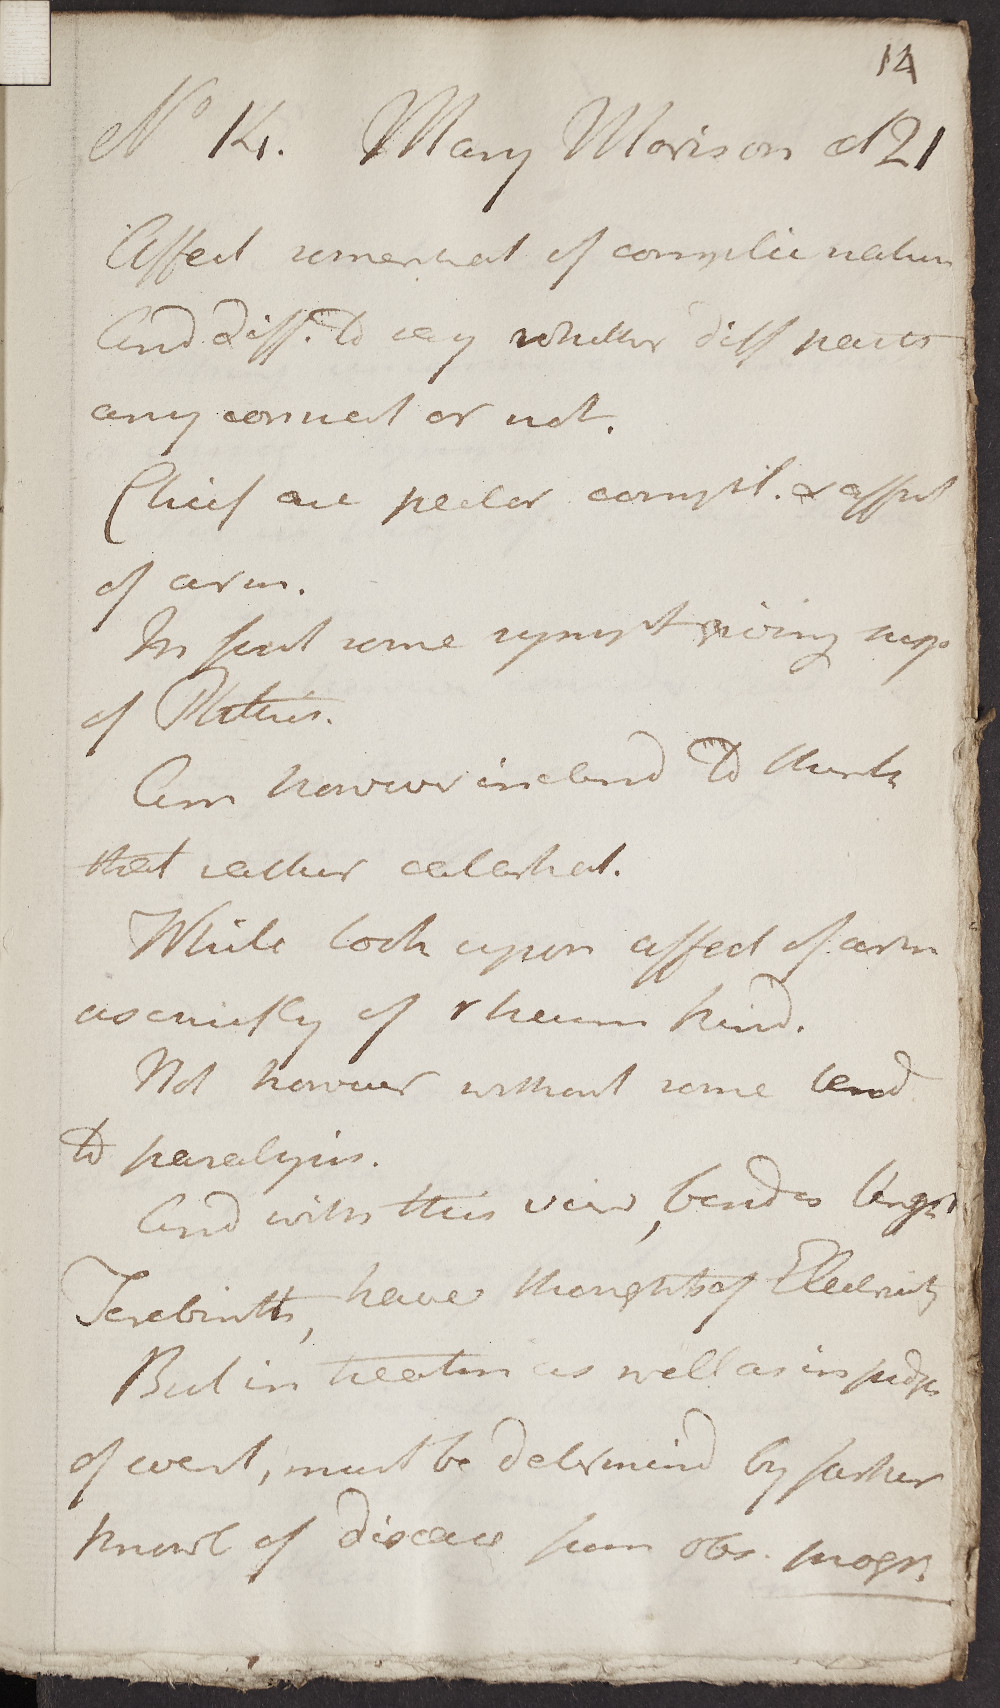 14
No 14. Mary Morison æt 21
Affect somewhat of complic nature
And diff. to say whether diff parts
any connect or not.
Chief are pector compl. & affect
of arm.
In first some sympt giving susp
of Phthisis.
Am however inclend to think
that rather catarrhal.
While look upon affect of arm
as chiefly of rheum kind.
Not however without some tend
to paralysis.
And with this view, besides Ungt
Terebinth, have thoughts of Electricity
But in treatm as well as in judgt
of event, must be determind by farther
knowl of disease from obs. progr.